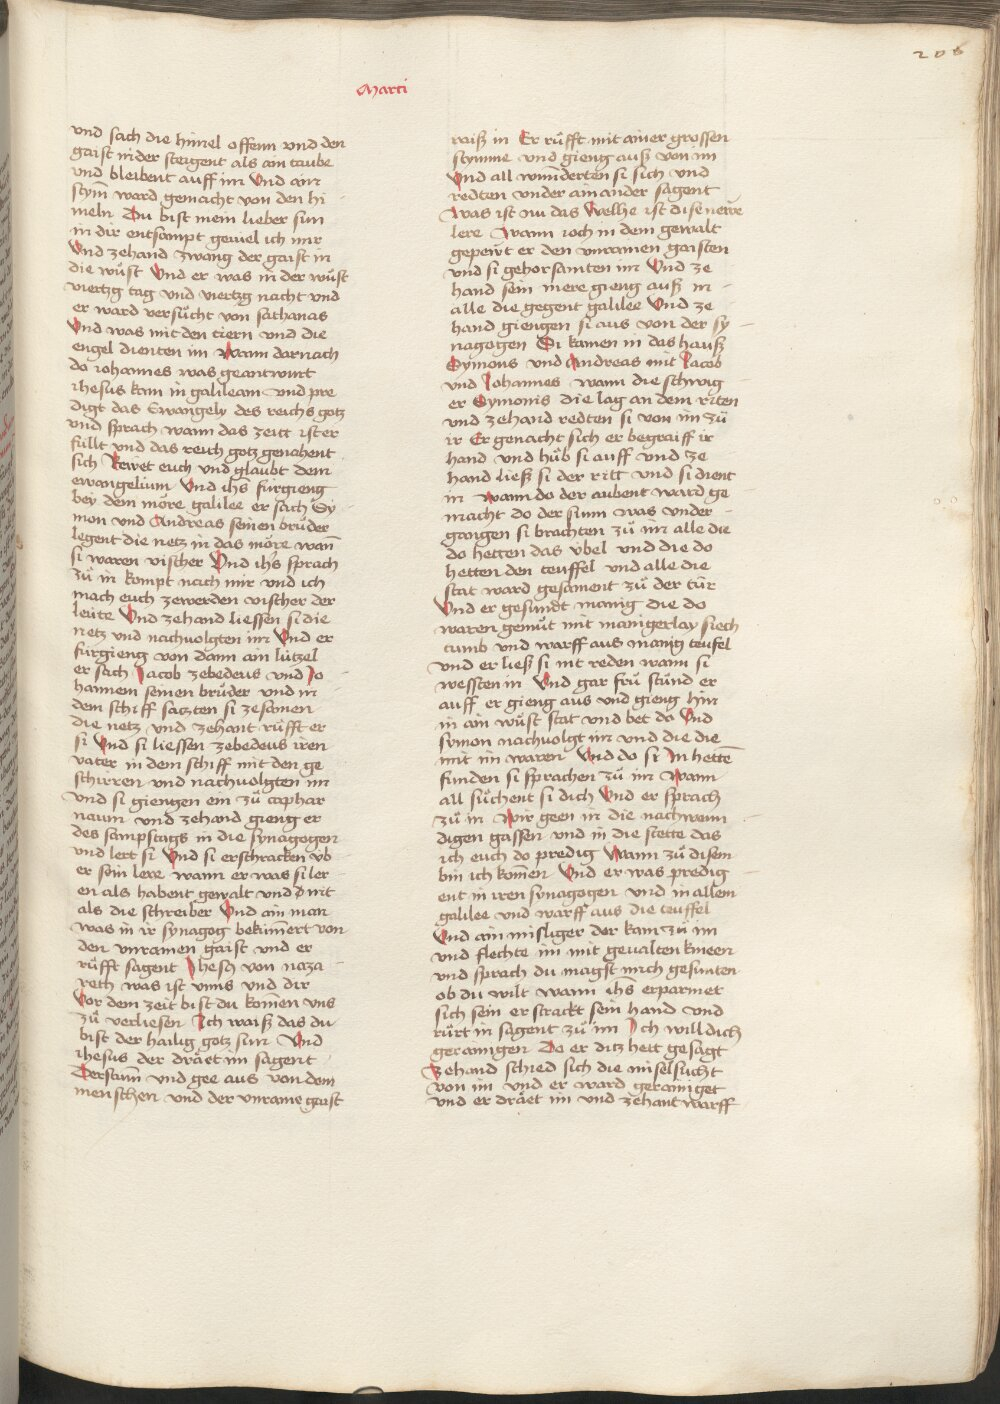 206
Marci
und sach die himel offenn und den
gaist nider steigent als ain taube
und bleibent auff im Und ain
stym̄ ward gemacht von den hi
meln Du bist mein lieber sun
in dir entsampt geuiel ich mir
Und zehand zwang der gaist in
die wuͤst Und er was in der wuͤst
viertzig tag und viertzig nacht und
er ward versuͤcht von sathanas
Und was mit den tiern und die
engel dienten im Wann darnach
do iohannes was geantwurt
ihesus kam in galileam und pre
digt das Ewangely des reichs gotz
und sprach wann das zeitt ist er
füllt und das reich gotz genahent
sich Rewet euch und glaubt dem
ewangelium Und ihs̄ fürgieng
bey dem moͤre galilee er sach Sy
mon und Andreas seinen bruͤder
legent die netz in das moͤre wan̄
si waren vischer Und ihs sprach
zuͤ in kompt nach mir und ich
mach euch zewerden vischer der
leüte Und zehand liessen si die
netz und nachuolgten im Und er
fürgieng von dann ain lützel
er sach Jacob zebedeus und Jo
hannem seinen bruͤder und in
dem schiff satzten si zesamen
die netz und zehant ruͤfft er
si Und si liessen zebedeus iren
vater in dem schiff mit den ge
schirren und nachuolgten im
und si giengen ein zuͤ caphar
naum und zehand gieng er
des sampstags in die synagogen
und lert si Und si erschracken üb
er sein lere wann er was si ler
en als habent gewalt und nit
als die schreiber Und ain man
was in ir synagog bekümert von
den unrainen gaist und er
ruͤfft sagent Jhesus von naza
reth was ist unns und dir
Vor dem zeit bist du komen uns
zuͤ verliesen Ich waiß das du
bist der hailig gotz sun Und
ihesus der draͤet im sagent
Verstum̄ und gee aus von dem
menschen und der unraine gaist
raiß in Er ruͤfft mit ainer grossen
stymme und gieng auß von im
Und all wunderten si sich und
redten under ain ander sagent
Was ist nu das Welhe ist dise newe
lere Wann ioch in dem gewalt
gepeüt er den unrainen gaisten
und si gehorsamten im Und ze
hand sein mere gieng auß in
alle die gegent galilee Und ze
hand giengen si aus von der sy
nagogen Si kamen in das hauß
Symons und Andreas mit Jacob
und Johannes wann die schwig
er Symonis die lag an dem riten
und zehand redten si von im zuͤ
ir Er genacht sich er begraiff ir
hand und huͤb si auff und ze
hand ließ si der ritt und si dient
in Wann do der aubent ward ge
macht do der sunn was under
gangen si brachten zuͤ im alle die
do hetten das übel und die do
hetten den teuffel und alle die
stat ward gesament zuͤ der tür
Und er gesundt manig die do
waren gemuͤt mit manigerlay siech
tumb und warff aus manig teufel
und er ließ si nit reden wann si
wessten in Und gar fruͤ stuͤnd er
auff er gieng aus und gieng hin
in ain wuͤst stat und bet do Und
symon nachuolgt im und die die
mit im waren Und do si In hetten̄
funden si sprachen zuͤ im Wann
all suͤchent si dich Und er sprach
zuͤ in Wir geen in die nachwenn
digen gassen und in die stette das
ich euch do predig Wann zuͤ disem
bin ich komen Und er was predig
ent in iren synagogen und in allem
galilee und warff aus die teuffel
Und ain misliger der kam zuͤ im
und flechte im mit geualten kneen
und sprach du magst mich gesunten
ob du wilt wann ihs̄ erparmet
sich sein er strackt sein hand und
ruͤrt in sagent zuͤ im Ich will dich
gerainigen Do er ditz hett gesagt
Zehand schied sich die miselsucht
von im und er ward gerainiget
und er draͤet im und zehant warff